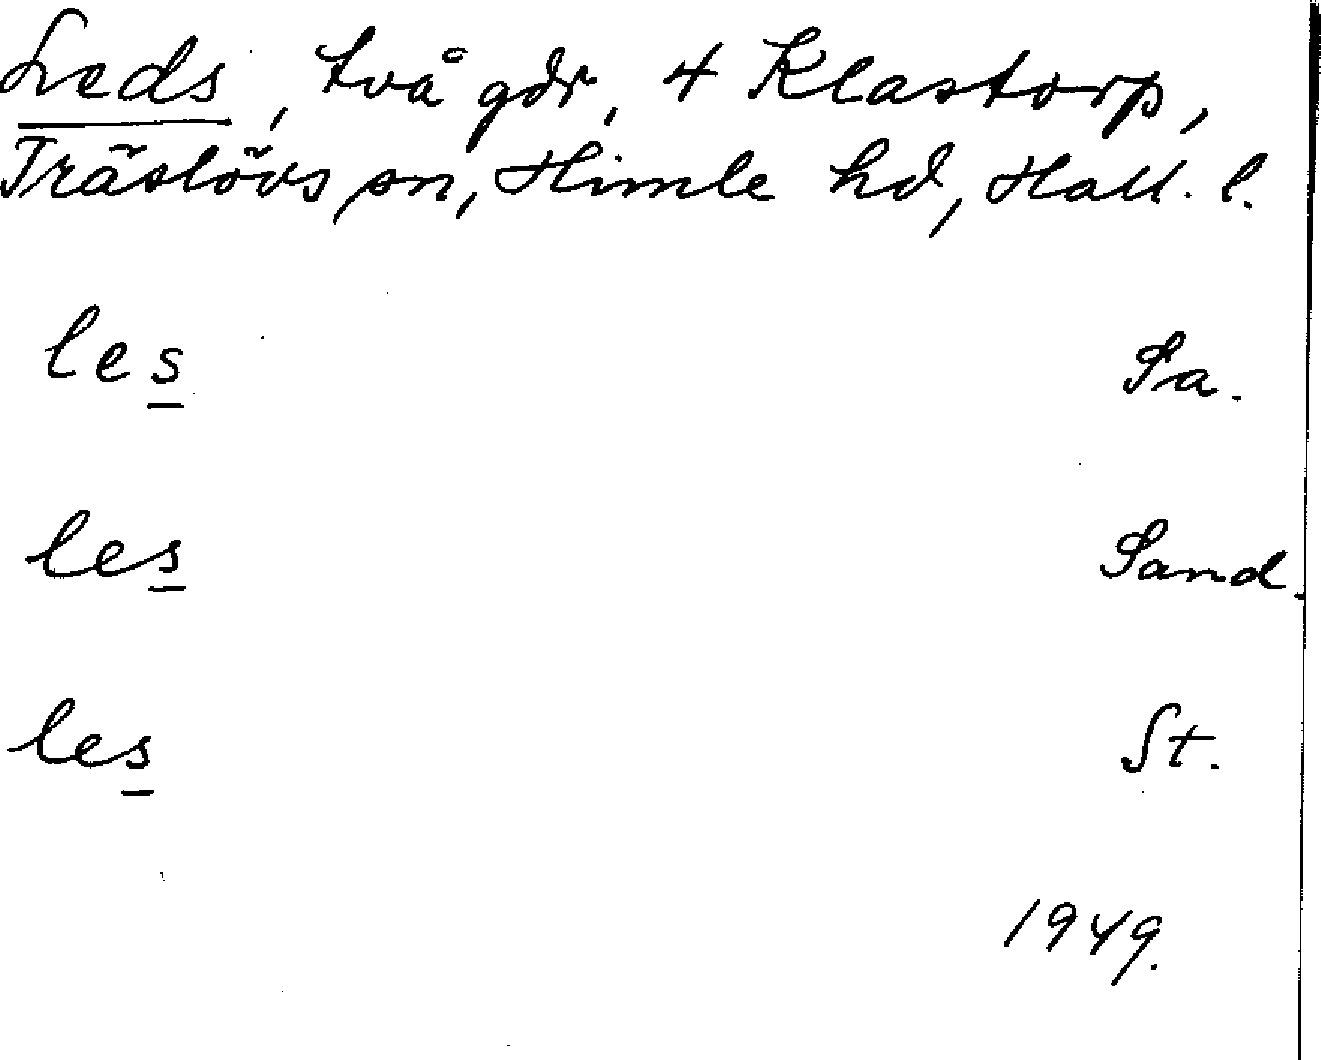 Leds, två gdr, 4 Klastorp,
Träslövs sn, Himle hd, Hall. l.
les Sa.
les Sand.
les St.
1949.